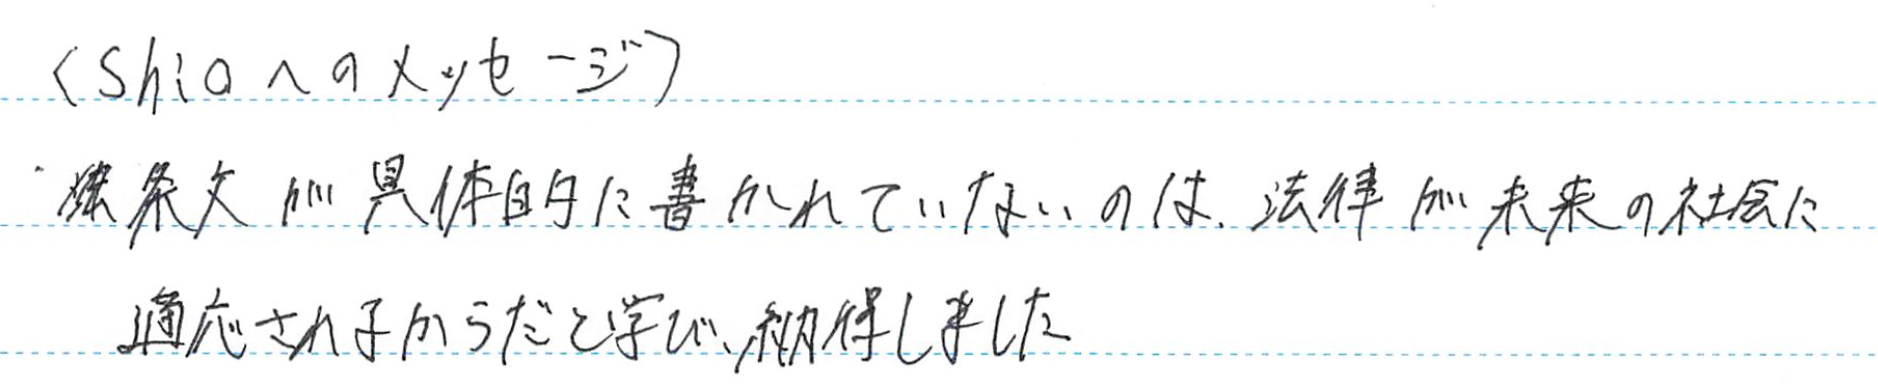 〈Shioへのメッセージ〉
・条文が具体的に書かれていないのは、法律が未来の社会に
適応されるからだと学び、納得しました